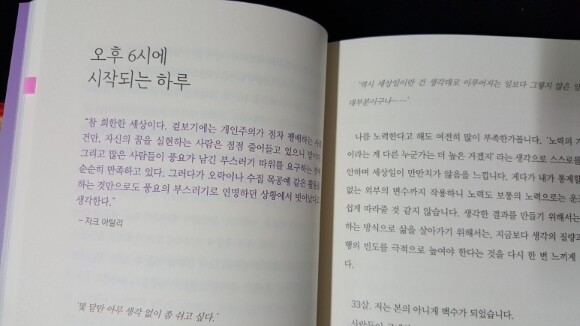 오후 6시에
시작되는 하루
"참 희한한 세상이다. 겉보기에는 개인주의가 점차 팽배하는
건만, 자신의 꿈을 실현하는 사람은 점점 줄어들고 있으니
그리고 많은 사람들이 풍요가 남긴 부스러기 따위를 요구하는
순순히 만족하고 있다. 그러다가 오락이나 수집 목공에 같은
하는 것만으로도 풍요의 부스러기로 연명하던 상황에서 벗어났다고
생각한다."
- 자크 아탈리
'몇 달만 아무 생각 없이 좀 쉬고 싶다.'
'역시 세상일이란 건 생각대로 이루어지는 일보다 그렇지 않은
대부분이구나……'
나름 노력한다고 해도 여전히 많이 부족한가봅니다. '노력의
이라는 게 다른 누군가는 더 높은 거겠지' 라는 생각으로 스스로를
안하며 세상일이 만만치가 않음을 느낍니다. 게다가 내가 통제할
없는 외부의 변수까지 작용하니 노력도 보통의 노력으로는
쉽게 따라줄 것 같지 않습니다. 생각한 결과를 만들기 위해서는
하는 방식으로 삶을 살아가기 위해서는, 지금보다 생각의 질량과
행의 빈도를 극적으로 높여야 한다는 것을 다시 한 번 느끼게
다.
33살. 저는 본의 아니게 백수가 되었습니다.